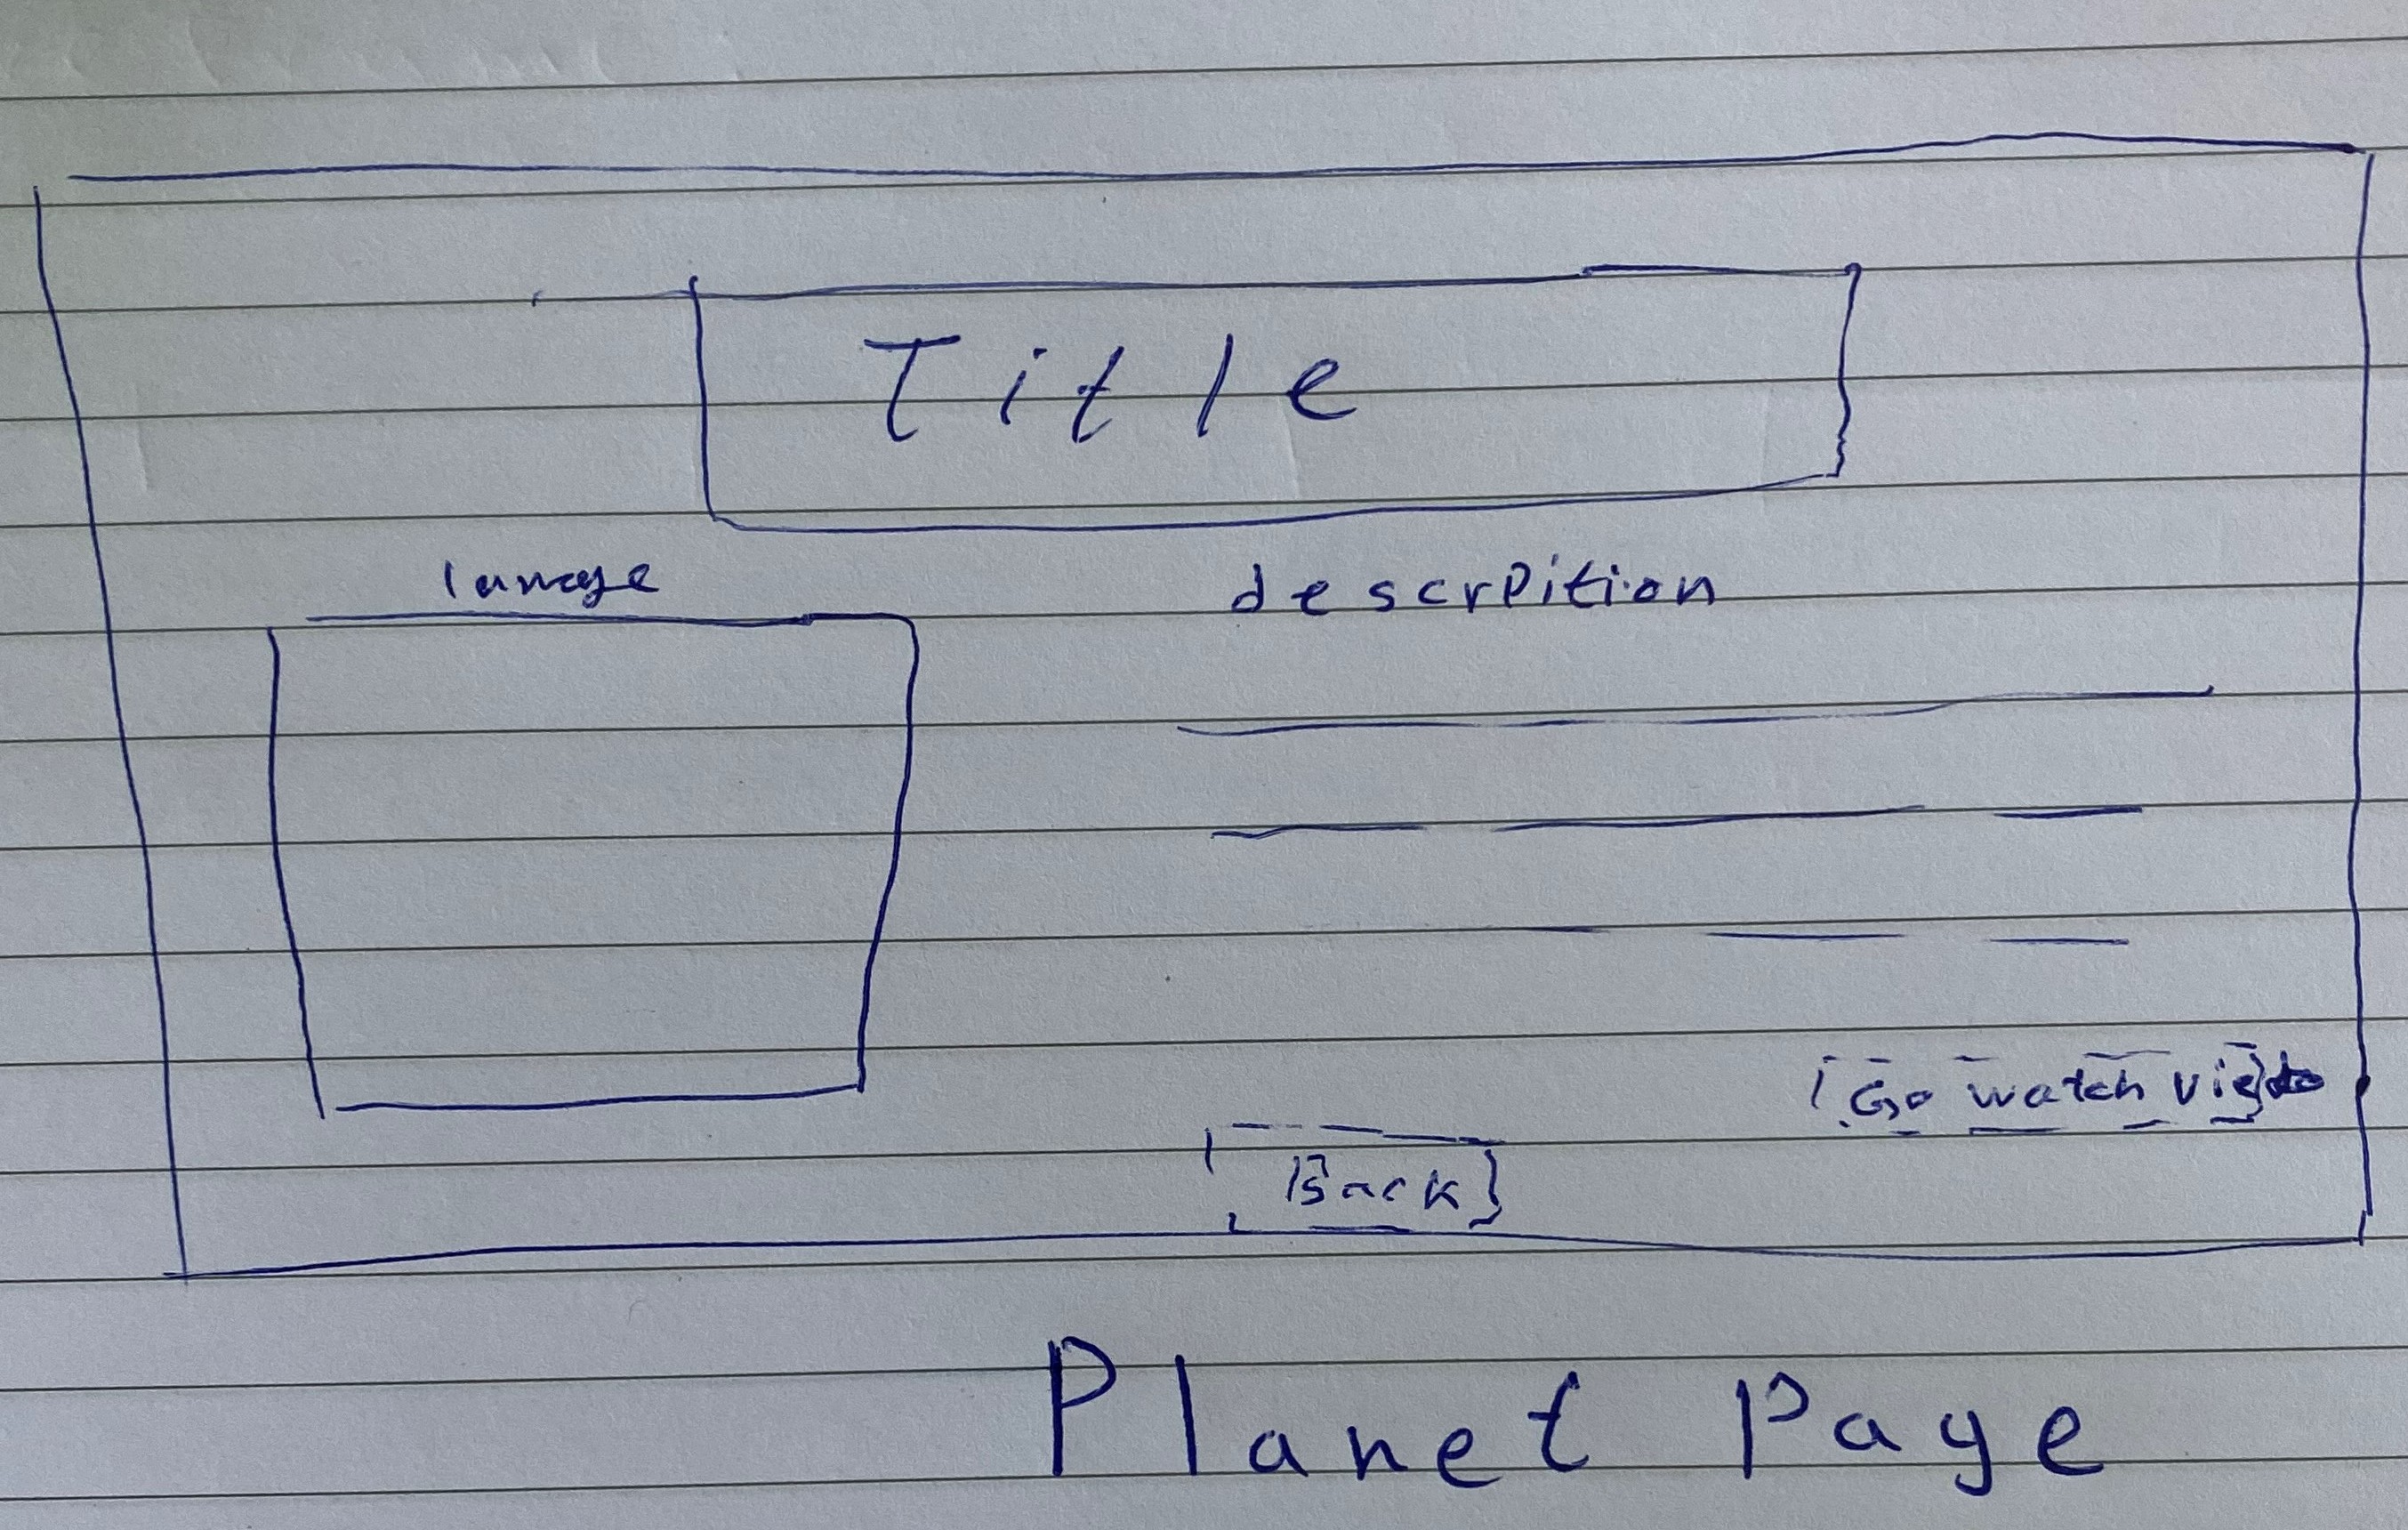 Title
Image
descrpition
Go watch video
Back
Planet Page